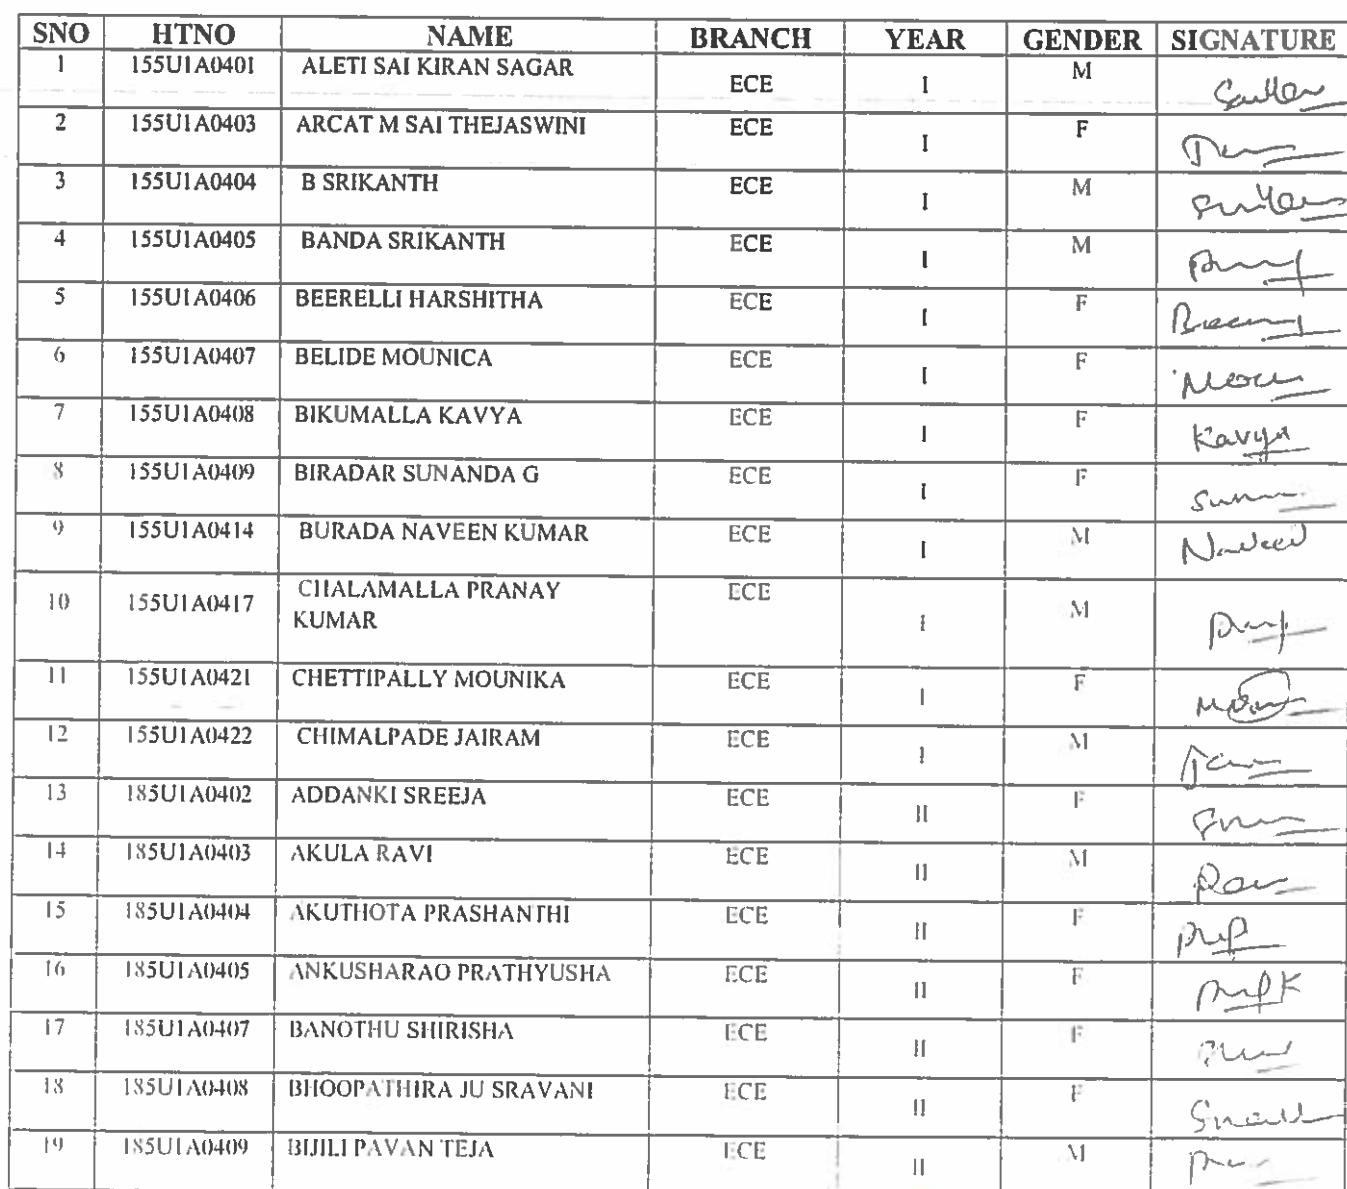 SNO HTNO NAME BRANCH YEAR GENDER SIGNATURE
1 155U1A0401 ALETI SAI KIRAN SAGAR ECE I M
2 155U1A0403 ARCAT M SAI THEJASWINI ECE I F
3 155U1A0404 B SRIKANTH ECE I M
4 155U1A0405 BANDA SRIKANTH ECE I M
5 155U1A0406 BEERELLI HARSHITHA ECE I F
6 155U1A0407 BELIDE MOUNICA ECE I F
7 155U1A0408 BIKUMALLA KAVYA ECE I F Kavya
8 155U1A0409 BIRADAR SUNANDA G ECE I F
9 155U1A0414 BURADA NAVEEN KUMAR ECE I M Naveen
10 155U1A0417 CHALAMALLA PRANAY ECE I M
KUMAR
11 155U1A0421 CHETTIPALLY MOUNIKA ECE I F
12 155U1A0422 CHIMALPADE JAIRAM ECE I M
13 185U1A0402 ADDANKI SREEJA ECE II F
14 185U1A0403 AKULA RAVI ECE II M
15 185U1A0404 AKUTHOTA PRASHANTHI ECE II F
16 185U1A0405 ANKUSHARAO PRATHYUSHA ECE II F
17 185U1A0407 BANOTHU SHIRISHA ECE II F
18 185U1A0408 BHOOPATHIRA JU SRAVANI ECE II F
19 185U1A0409 BIJILI PAVAN TEJA ECE II M